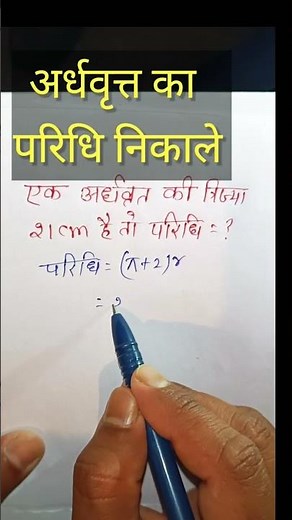 अर्धवृत्त का
परिधि निकाले
एक अर्धवृत की त्रिज्या
21cm है तो परिधि = ?
परिधि = (π+2)r
=